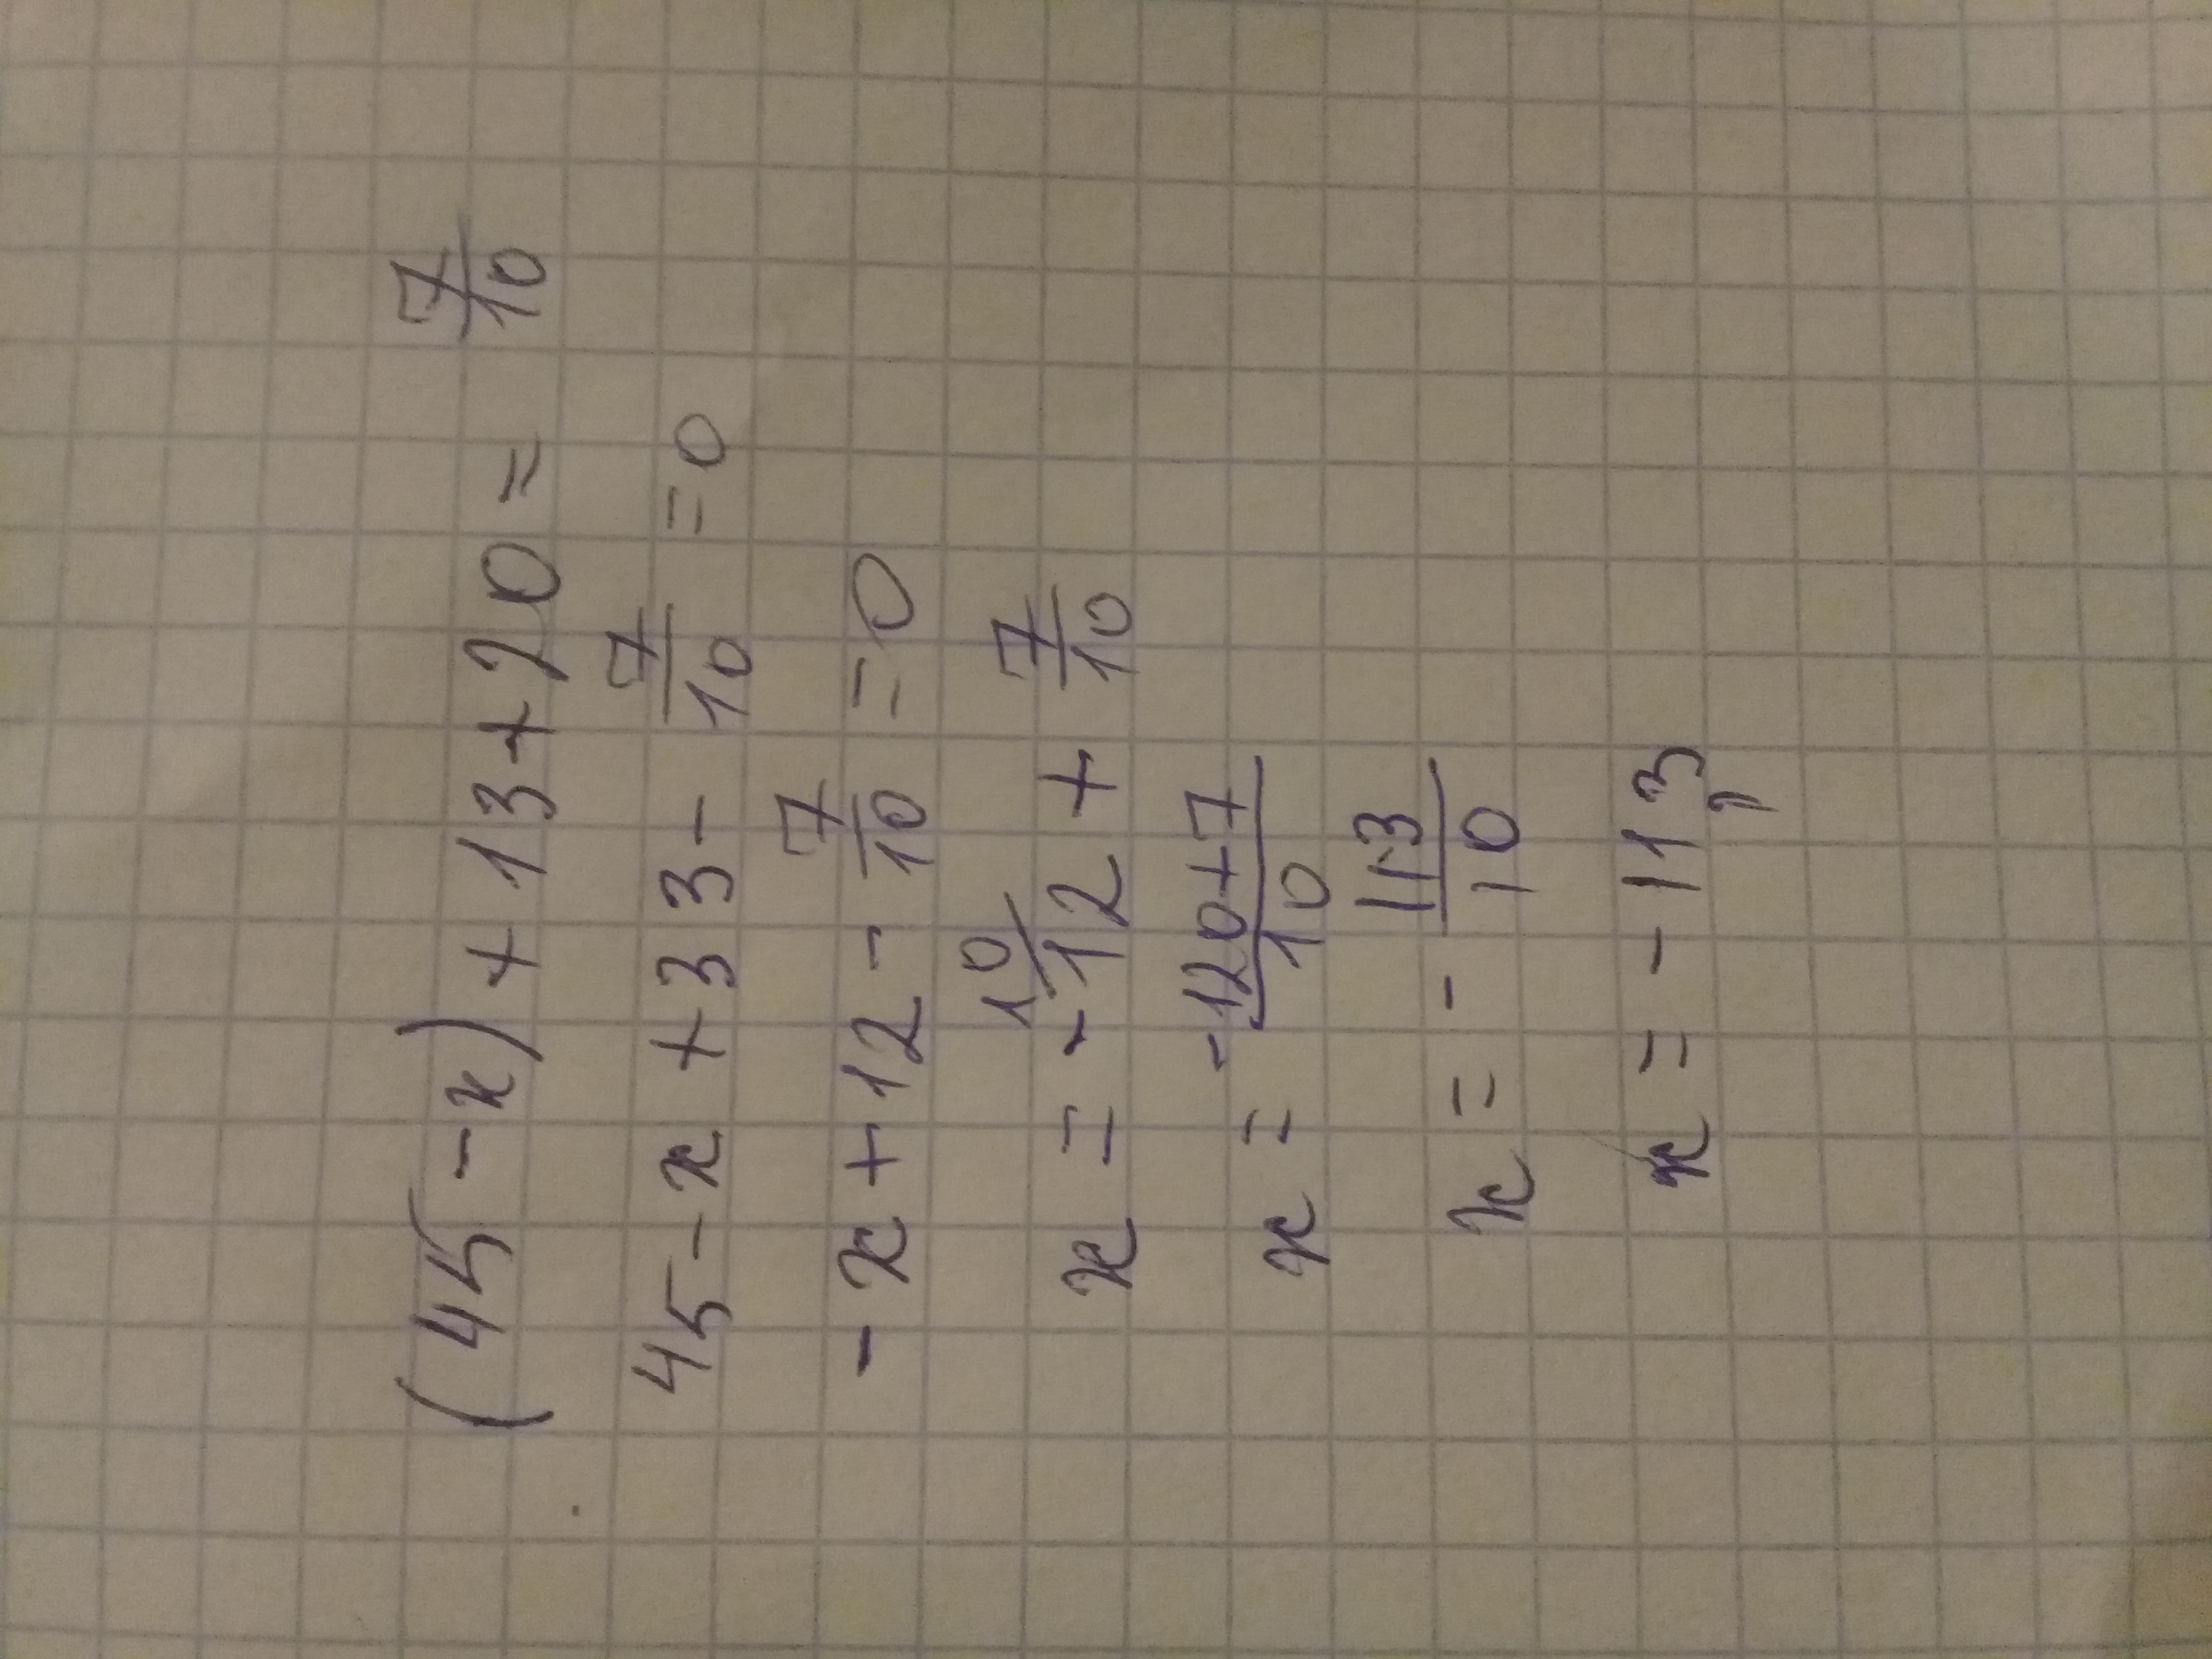 (45 - x) + 13 + 20 = 7/10
45 - x + 33 - 7/10 = 0
- x + 12 - 7/10 = 0
x = - 12 10/ + 7/10
x = -120+7/10
x = - 113/10
x = - 11,3